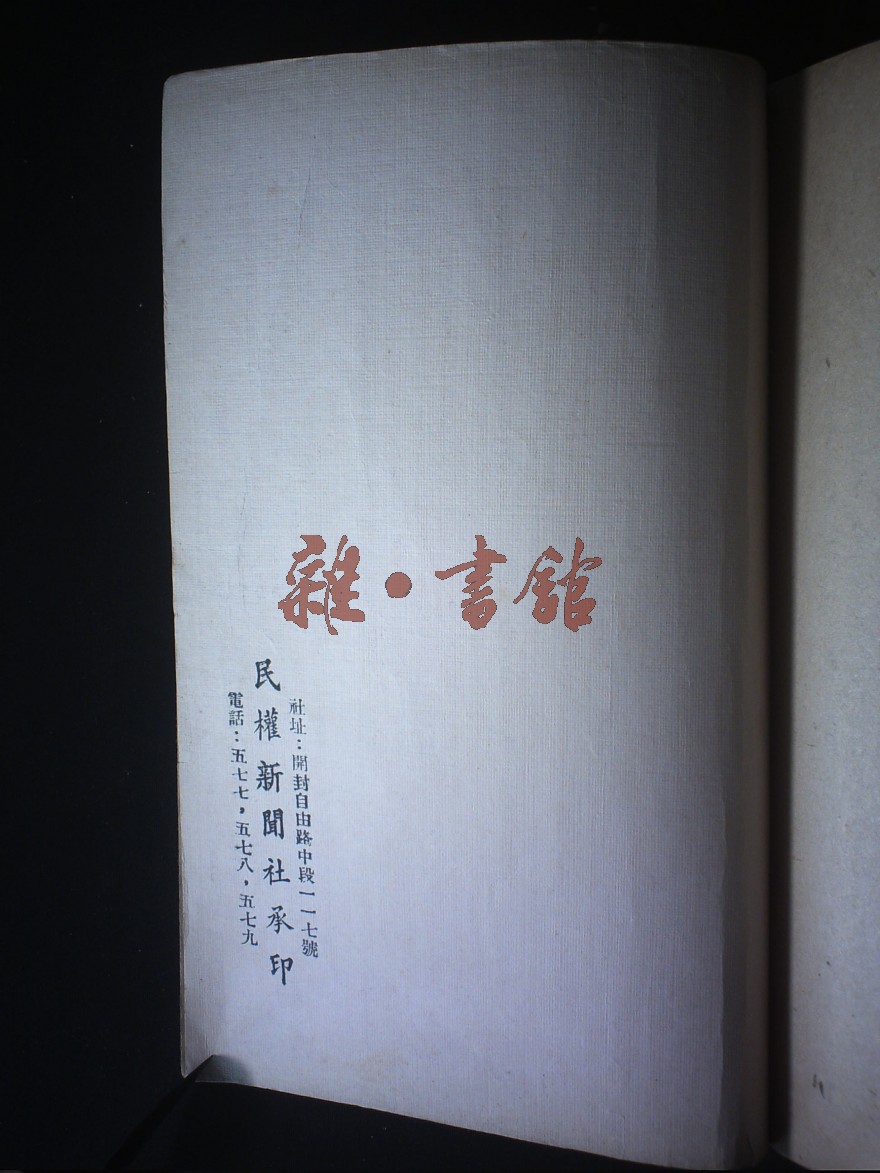 雜·書館
社址：開封自由路中段一一七號
民權新聞社承印
電話：五七七，五七八，五七九